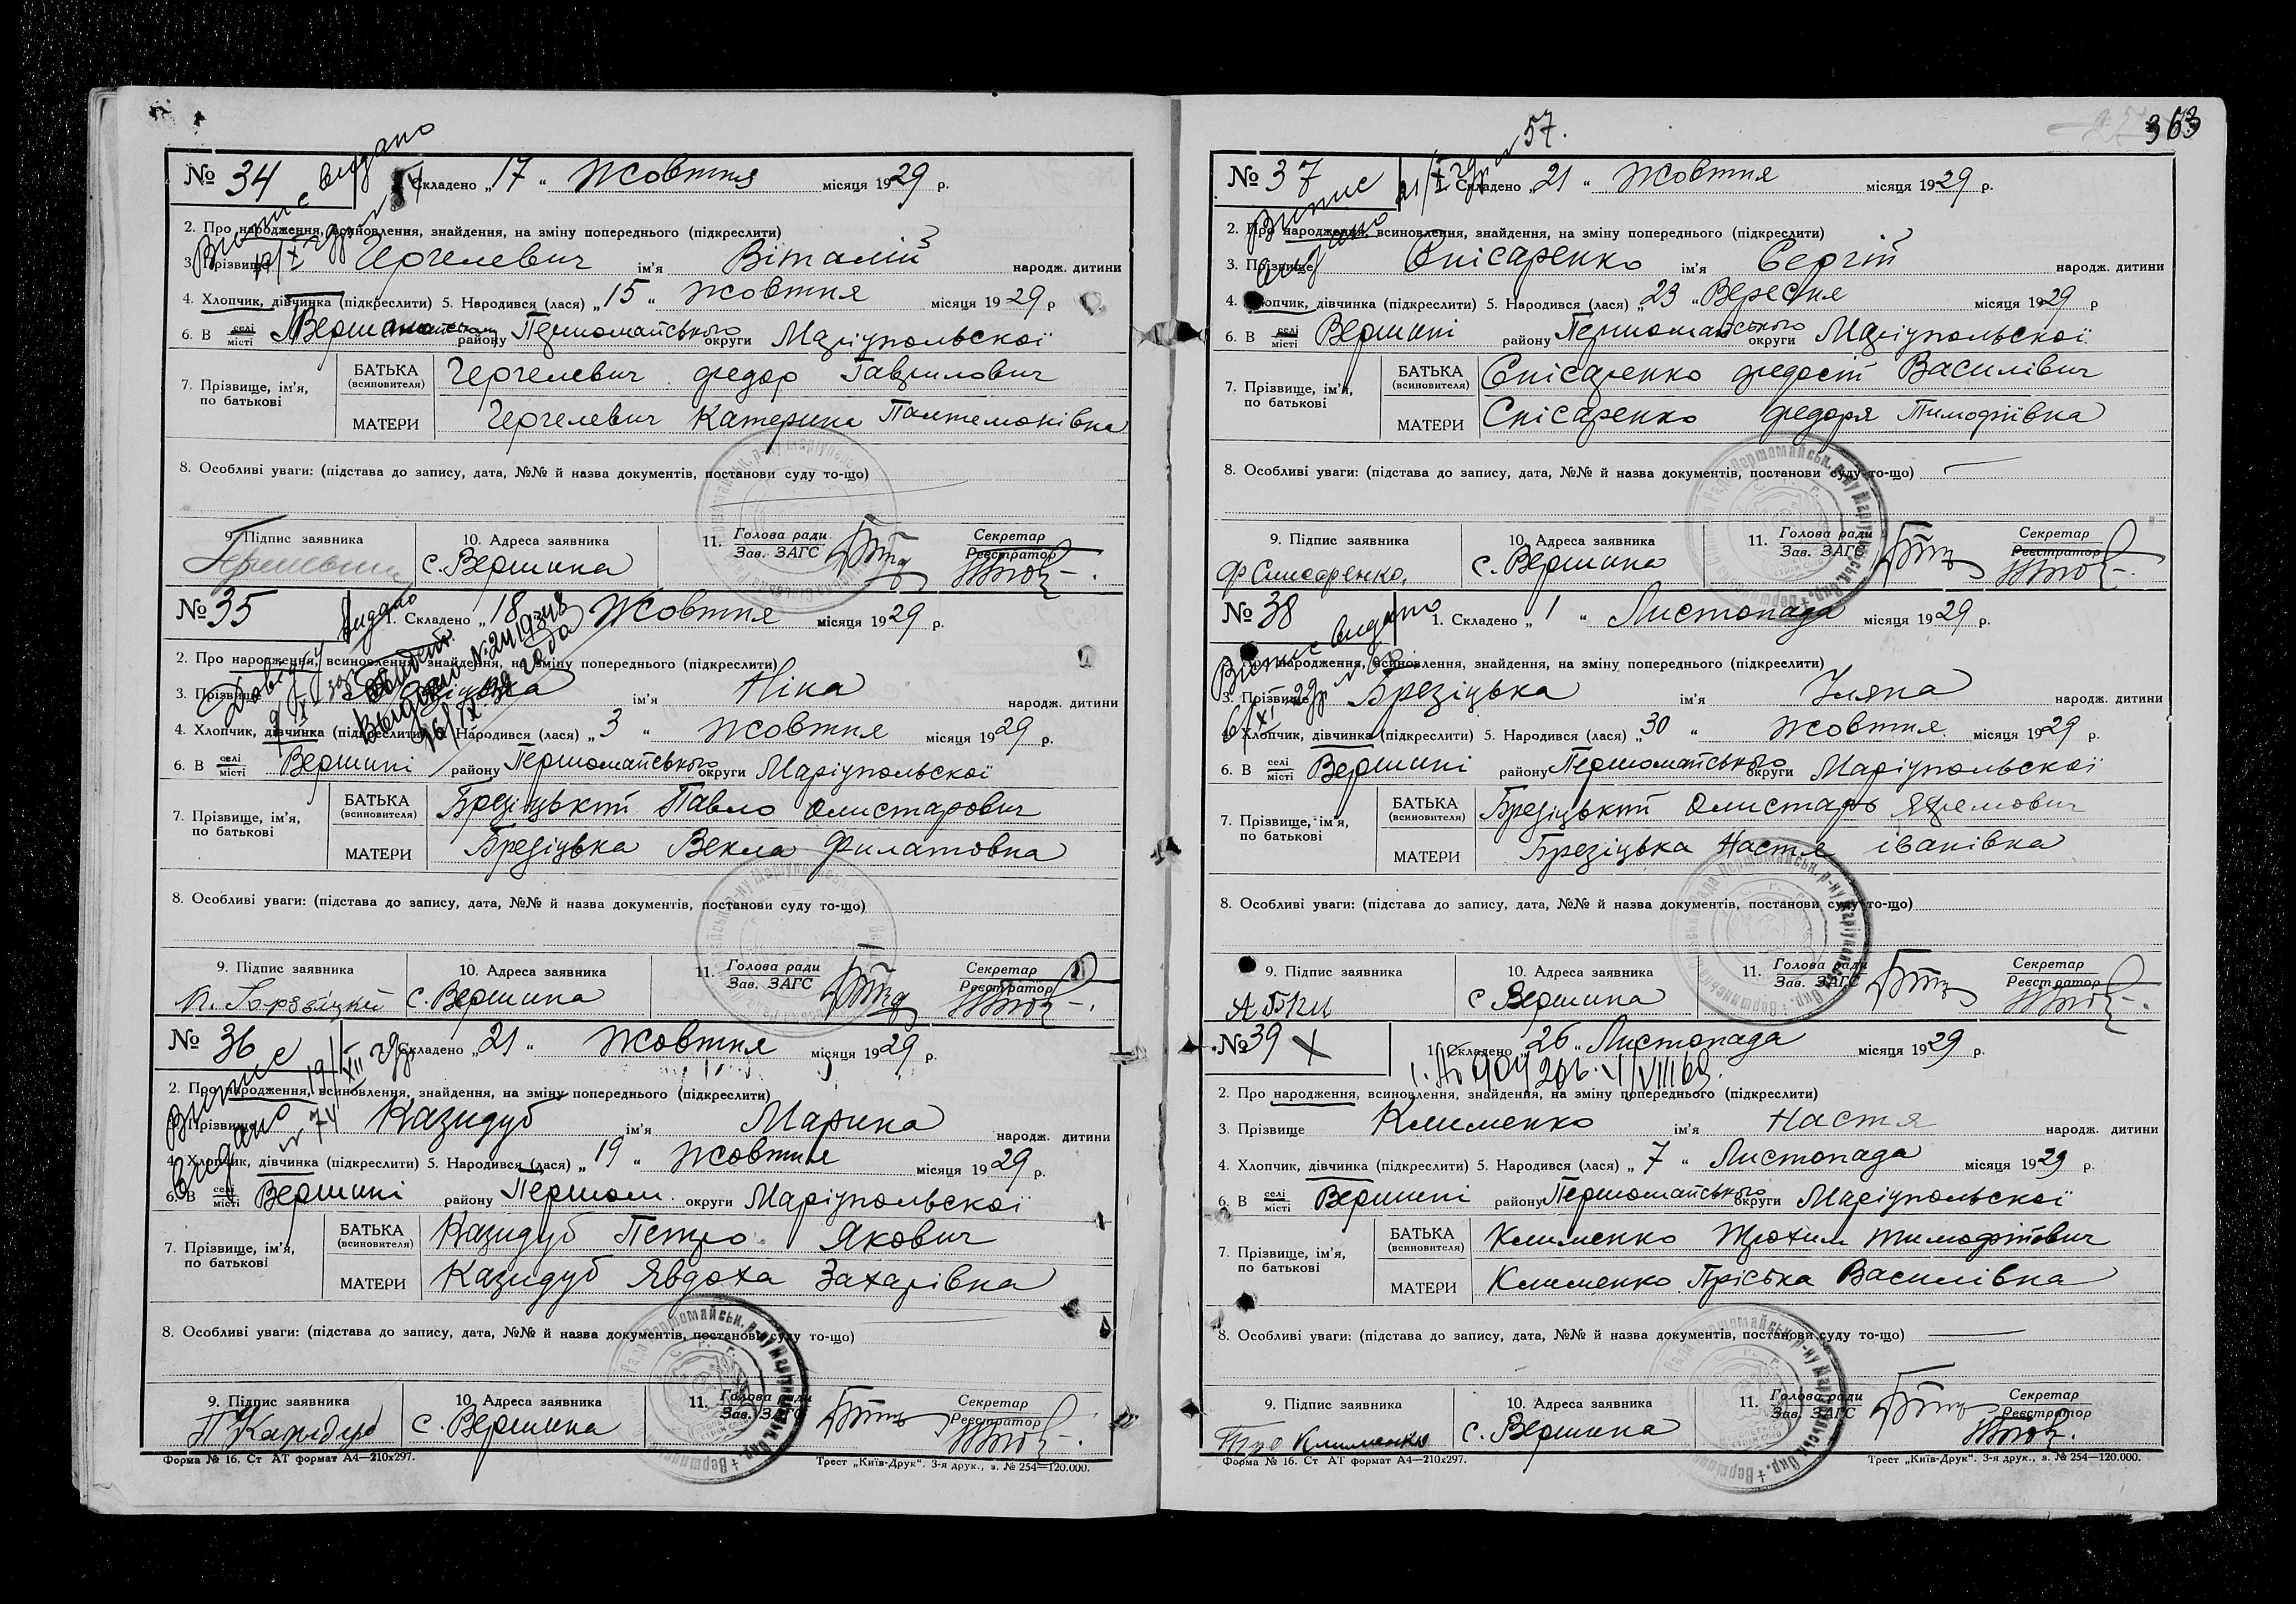 363
№ 34
Складено „17“ Жовтня місяця 1929 р.
2. Про народження, всиновлення, знайдення, на зміну попереднього (підкреслити)
3. Прізвище Чергелевич ім'я Віталій народж. дитини
4. Хлопчик, дівчинка (підкреслити) 5. Народився (лася) „15“ Жовтня місяця 1929 р
6. В селі місті району Першомайського округи Маріупольскої
7. Прізвище, ім'я, по батькові
БАТЬКА (всиновителя) Чергелевич Федор Гаврилович
МАТЕРИ Чергелевич Катерина Пантемонівна
8. Особливі уваги: (підстава до запису, дата, №№ й назва документів, постанови суду то-що)
9. Підпис заявника
10. Адреса заявника с. Вершина
11. Голова ради Зав. ЗАГС
Секретар Реєстратор
№ 35
видано
1. Складено „18 Жовтня місяця 1929 р.
2. Про народження, всиновлення, знайдення, на зміну попереднього (підкреслити)
3. Прізвище ім'я Ніна народж. дитини
4. Хлопчик, дівчинка (підкреслити) Народився (лася) „3“ Жовтня місяця 1929 р.
6. В селі місті Вершині району Першомайського округи Маріупольскої
7. Прізвище, ім'я, по батькові
БАТЬКА (всиновителя) Брезіцький Павло Олистарович
МАТЕРИ Брезіцька Векла Филатовна
8. Особливі уваги: (підстава до запису, дата, №№ й назва документів, постанови суду то-що)
9. Підпис заявника
10. Адреса заявника с. Вершина
11. Голова ради Зав. ЗАГС
Секретар Реєстратор
№ 36
Складено „21“ Жовтня місяця 1929 р.
2. Про народження, всиновлення, знайдення, на зміну попереднього (підкреслити)
Прізвище Казидуб ім'я Марина народж. дитини
4. Хлопчик, дівчинка (підкреслити) 5. Народився (лася) „19“ Жовтня місяця 1929 р.
6. В селі місті Вершині району Першом. округи Маріупольскої
7. Прізвище, ім'я, по батькові
БАТЬКА (всиновителя) Казидуб Петро Якович
МАТЕРИ Казидуб Явдоха Захарівна
8. Особливі уваги: (підстава до запису, дата, №№ й назва документів, постанови суду то-що)
9. Підпис заявника
10. Адреса заявника с. Вершина
11. Голова ради Зав. ЗАГС
Секретар Реєстратор
Форма № 16. Ст АТ формат А4—210х297.
Трест „Київ-Друк“. 3-я друк., з. № 254—120.000.
57.
№ 37
1. Складено „21“ Жовтня місяця 1929 р.
2. Про народження, всиновлення, знайдення, на зміну попереднього (підкреслити)
3. Прізвище Спісаренко ім'я Сергій народж. дитини
4. Хлопчик, дівчинка (підкреслити) 5. Народився (лася) „23“ Вересня місяця 1929 р
6. В селі місті Вершині району Першомайського округи Маріупольскої
7. Прізвище, ім'я, по батькові
БАТЬКА (всиновителя) Спісаренко Федосій Василівич
МАТЕРИ Спісаренко Федоря Тимофіївна
8. Особливі уваги: (підстава до запису, дата, №№ й назва документів, постанови суду то-що)
9. Підпис заявника
10. Адреса заявника с. Вершина
11. Голова ради Зав. ЗАГС
Секретар Реєстратор
№ 38
Витис видано
1. Складено „1“ Листопада місяця 1929 р.
2. Про народження, всиновлення, знайдення, на зміну попереднього (підкреслити)
3. Прізвище Брезіцька ім'я Уляна народж. дитини
4. Хлопчик, дівчинка (підкреслити) 5. Народився (лася) „30“ Жовтня місяця 1929 р.
6. В селі місті Вершині району Першомайського округи Маріупольскої
7. Прізвище, ім'я, по батькові
БАТЬКА (всиновителя) Брезіцький Олистарь Яхремович
МАТЕРИ Брезіцька Настя іванівна
8. Особливі уваги: (підстава до запису, дата, №№ й назва документів, постанови суду то-що)
9. Підпис заявника
10. Адреса заявника с Вершина
11. Голова ради Зав. ЗАГС
Секретар Реєстратор
№ 39
1. Складено 26 „ Листопада місяця 1929 р.
2. Про народження, всиновлення, знайдення, на зміну попереднього (підкреслити)
3. Прізвище Клименко ім'я Настя народж. дитини
4. Хлопчик, дівчинка (підкреслити) 5. Народився (лася) „7“ Листопада місяця 1929 р.
6. В селі місті Вершині району Першомайського округи Маріупольскої
7. Прізвище, ім'я, по батькові
БАТЬКА (всиновителя) Клименко Трохим тимофійович
МАТЕРИ Клименко Пріська Василівна
8. Особливі уваги: (підстава до запису, дата, №№ й назва документів, постанови суду то-що)
9. Підпис заявника
10. Адреса заявника с. Вершина
11. Голова ради Зав. ЗАГС
Секретар Реєстратор
Форма № 16. Ст АТ формат А4—210х297.
Трест „Київ-Друк“. 3-я друк., з. № 254—120.000.